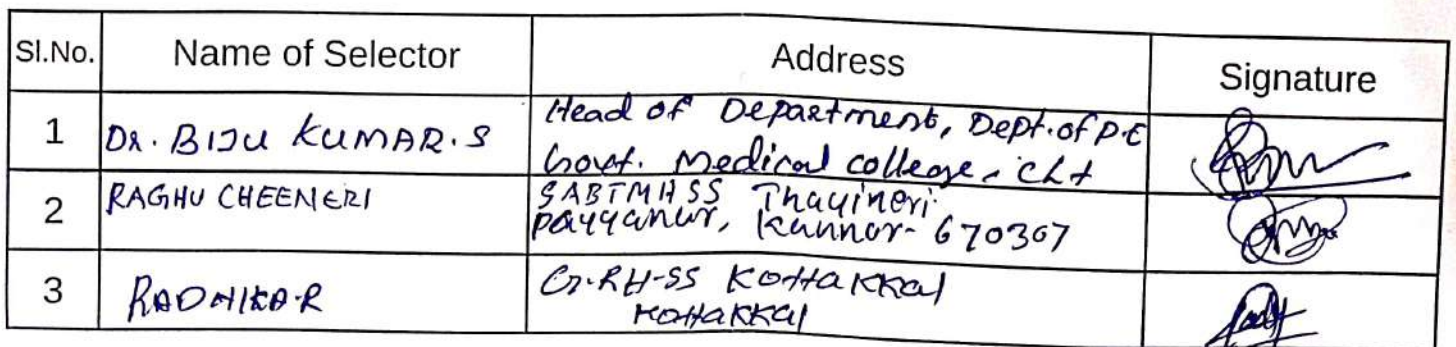 Sl.No. Name of Selector Address Signature
1 Dr. BIJU KUMAR.S Head of Department, Dept.of P.E
Govt. Medical college, CLt
2 RAGHU CHEENERI SABTMHSS Thayineri
Payyanur, Kannur- 670307
3 RADHIKA.R G.RH-SS Kottakkal
Kottakkal